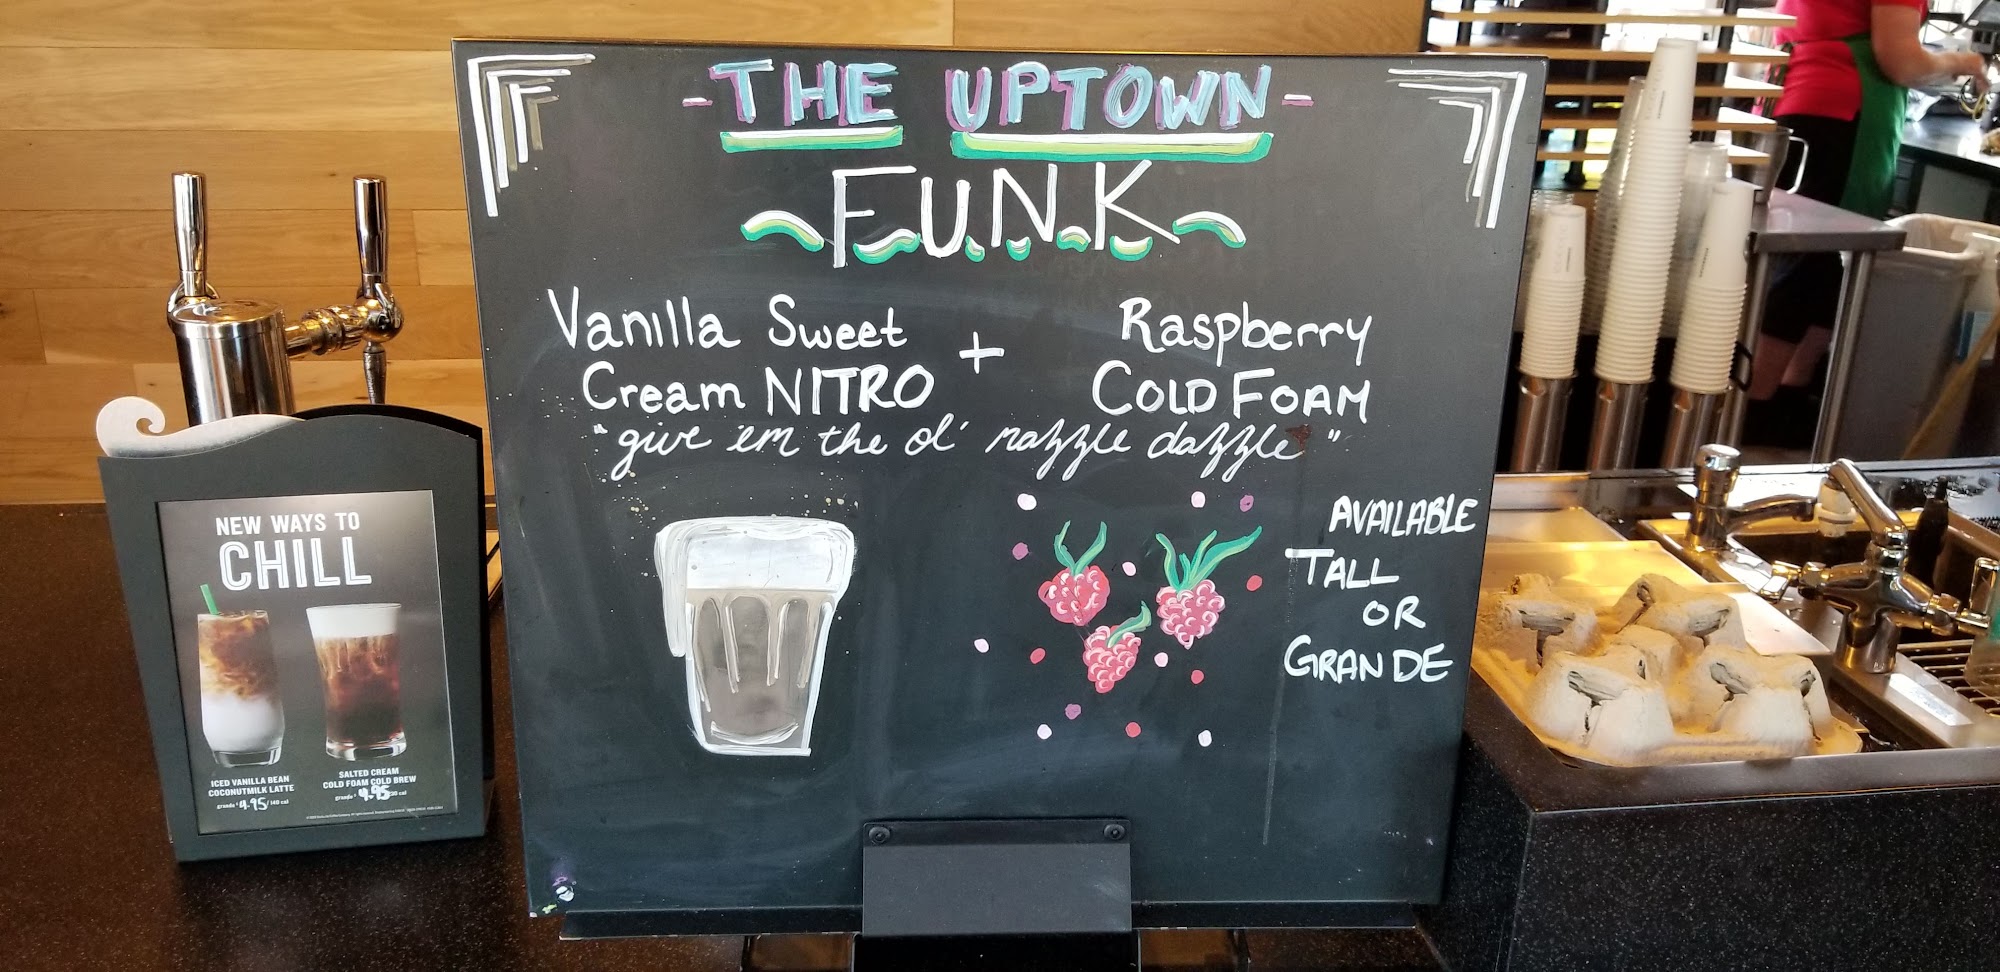 - THE UPTOWN -
F.U.N.K
Vanilla Sweet
Cream NITRO
+
Raspberry
COLD FOAM
"give 'em the ol' razzle dazzle"
AVAILABLE
TALL
OR
GRANDE
NEW WAYS TO
CHILL
ICED VANILLA BEAN
COCONUTMILK LATTE
grande $4.95/140 cal
SALTED CREAM
COLD FOAM COLD BREW
grande $4.95